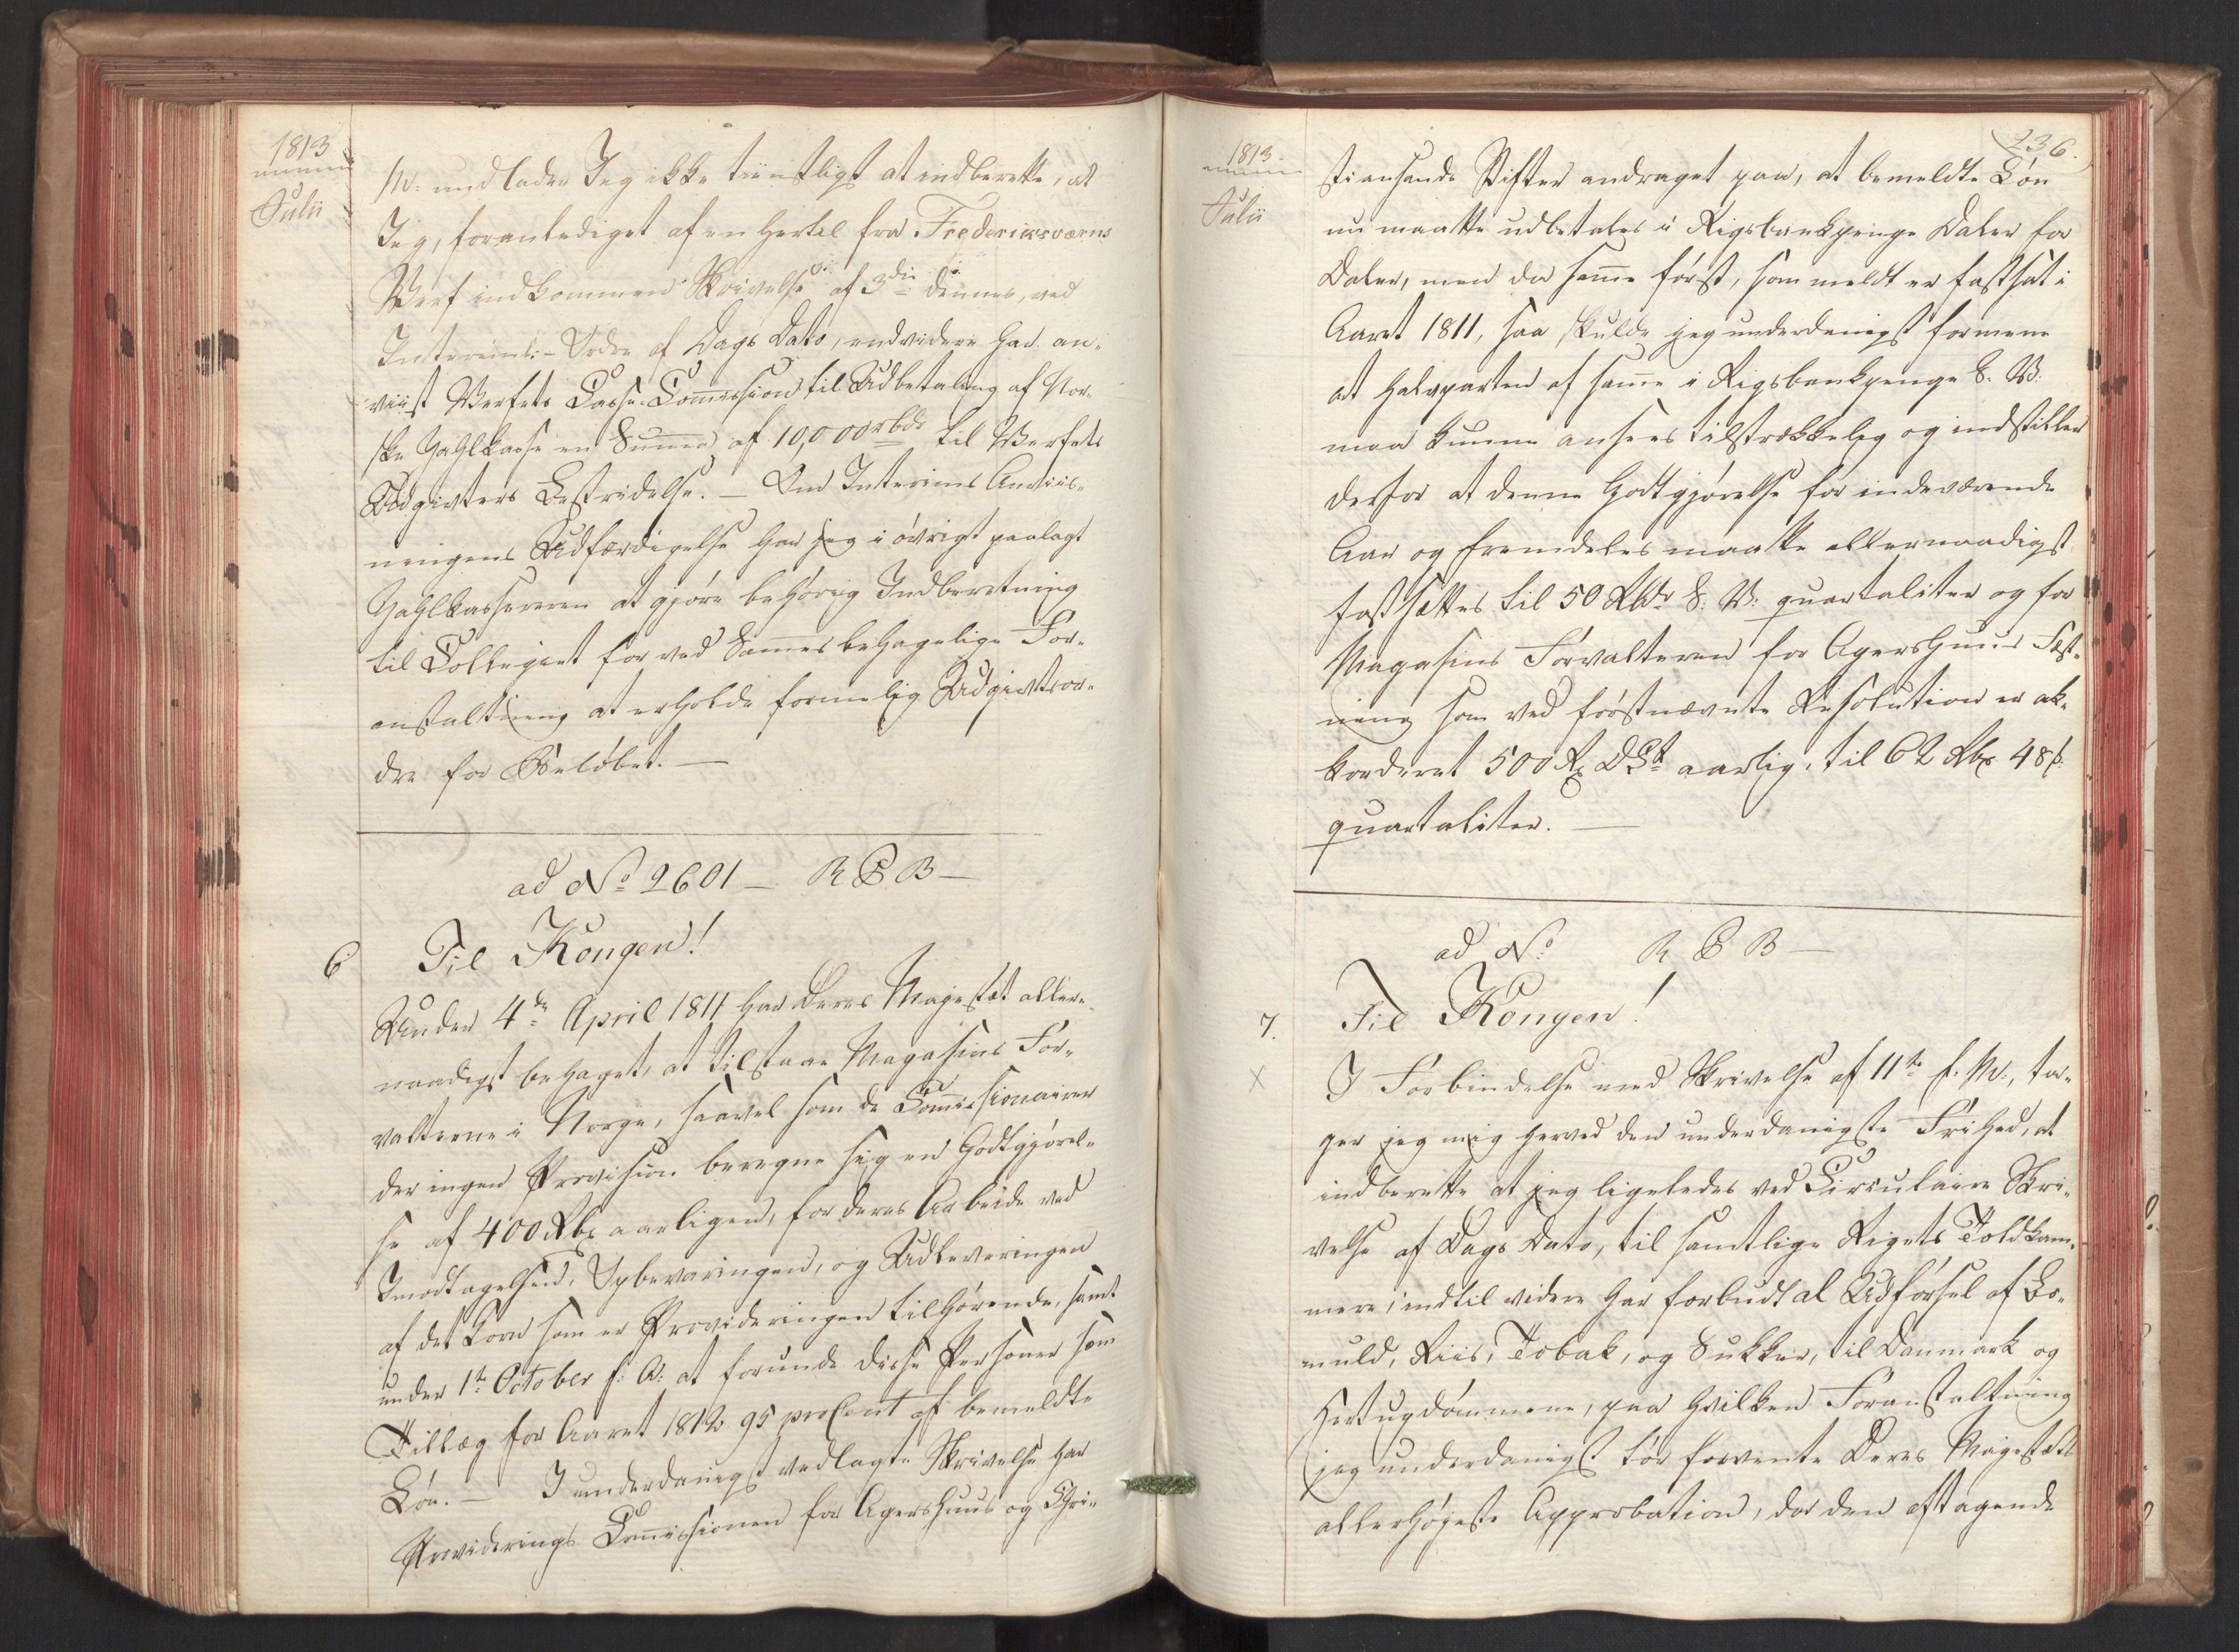 1813
Julii
M: undlader Jeg ikke tienstligst at indberette, at
Jeg, foranlediget af en hertil fra Fredericsværns
Værf indkommen Skrivelse af 3die dennes, ved
Interims-Ordre af Dags Dato, endvidere har an-
viist Værfets Casse-Commission til Udbetaling af Nor-
ske Zahlkasse en Summa af 10,000 rbdr til Værfets
Udgivters Bestridelse. — Om Interims Anviis-
ningens Udfærdigelse har jeg i øvrigt paalagt
Zahlkassereren at gjøre behørig Indberetning
til Collegiet for ved Sammes behagelige For-
anstaltning at erholde formelig Udgivtsor-
dre for Beløbet. —
ad No 2601 — R P B —
6 Til Kongen!
Under 4de April 1811 har Deres Majestæt aller-
naadigst behaget, at tilstaae Magasins For-
valterne i Norge, saavel som de Commissionairer
der ingen Provision beregne sig en Godtgjørel-
se af 400 Rbd aarligen, for deres Arbeide ved
Imodtagelsen, Opbevaringen, og Udleveringen
af det Korn som er Provideringen tilhørende, samt
under 1te October f: A: at forunde disse Personer som
Tillæg for Aaret 1812 95 proCent af bemeldte
Løn. — I underdanigst vedlagte Skrivelse har
Providerings Commissionen for Agershuus og Chri-
236.
1813.
Julii
stiansands Stifter andraget paa, at bemeldte Løn
nu maatte udbetales i Rigsbankpenge Daler for
Daler, men da samme først, som meldt er fastsat i
Aaret 1811, saa skulde jeg underdanigst formene
at Halvparten af samme i Rigsbankpenge S. V:
maa kunne ansees tilstrækkelig og indstiller
derfor at denne Godtgjørelse for indeværende
Aar og fremdeles maatte allernaadigst
fastsættes til 50 Rbdr S: V: quartaliter og for
Magasins Forvalteren for Agershuus Fæst-
ning som ved førstnævnte Resolution er ak-
korderet 500 Rd DCt aarlig, til 62 Rbd 48 ß.
quartaliter. —
ad No R P B —
7. Til Kongen!
X I Forbindelse med Skrivelse af 11te f. M., ta-
ger jeg mig herved den underdanigste Frihed, at
indberette at jeg ligeledes ved Circulaire Skri-
velse af Dags Dato, til samtlige Rigets Toldkam-
mere, indtil videre har forbudt al Udførsel af Bo-
muld, Riis, Tobak, og Sukker, til Danmark og
Hertugdømmene, paa hvilken Foranstaltning
jeg underdanigst tør forvente Deres Majestæts
allerhøjeste Approbation, da den aftagende